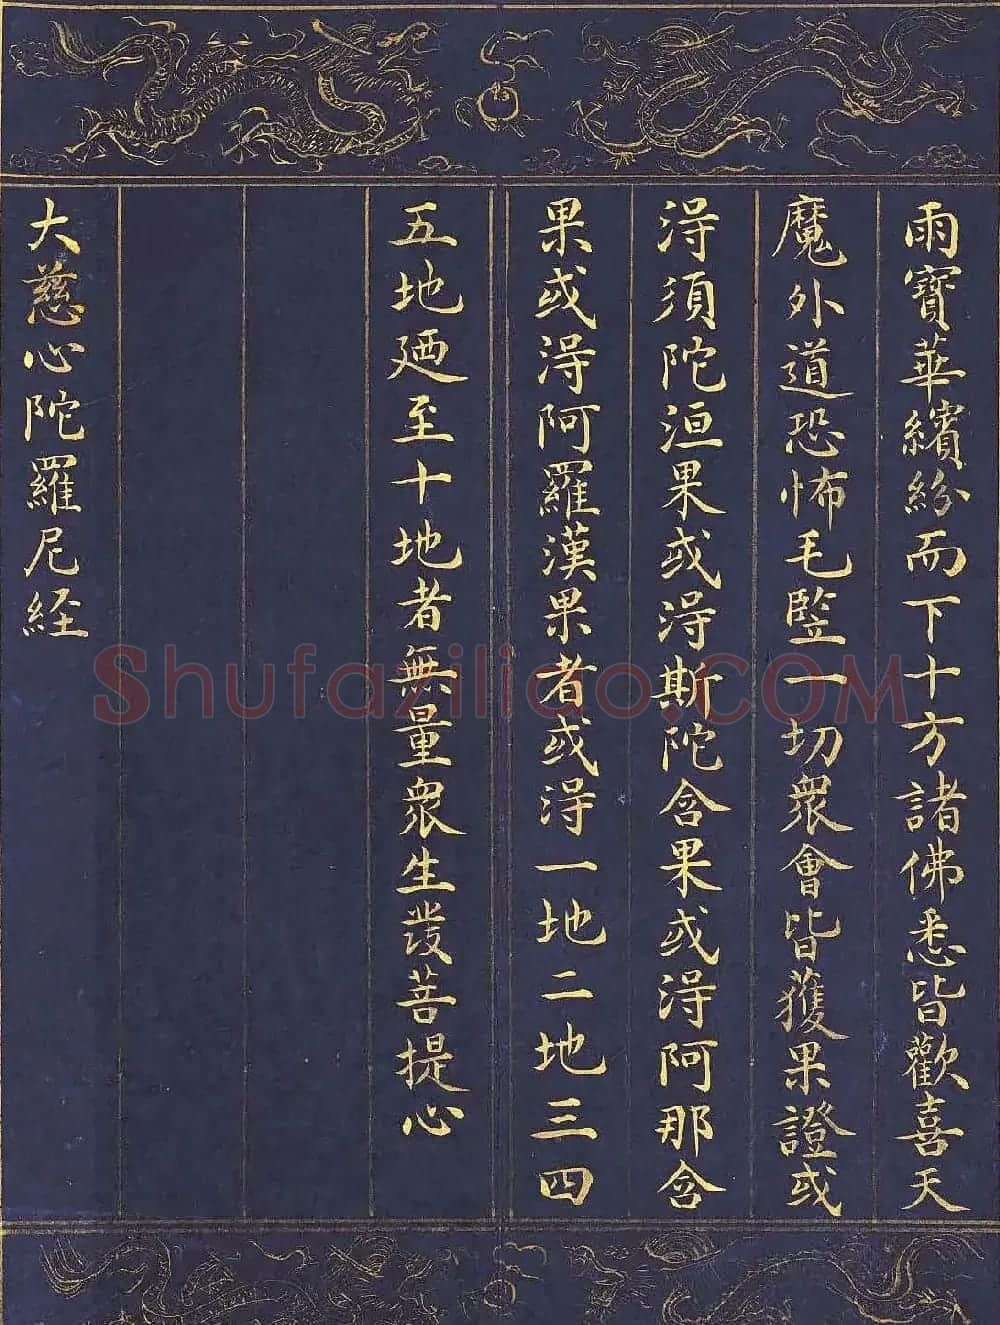 雨寶華繽紛而下十方諸佛悉皆歡喜天
魔外道恐怖毛竪一切衆會皆獲果證或
淂須陀洹果或淂斯陀含果或淂阿那含
果或淂阿羅漢果者或淂一地二地三四
五地廼至十地者無量衆生發菩提心
大慈心陀羅尼経
Shufaziliao.COM